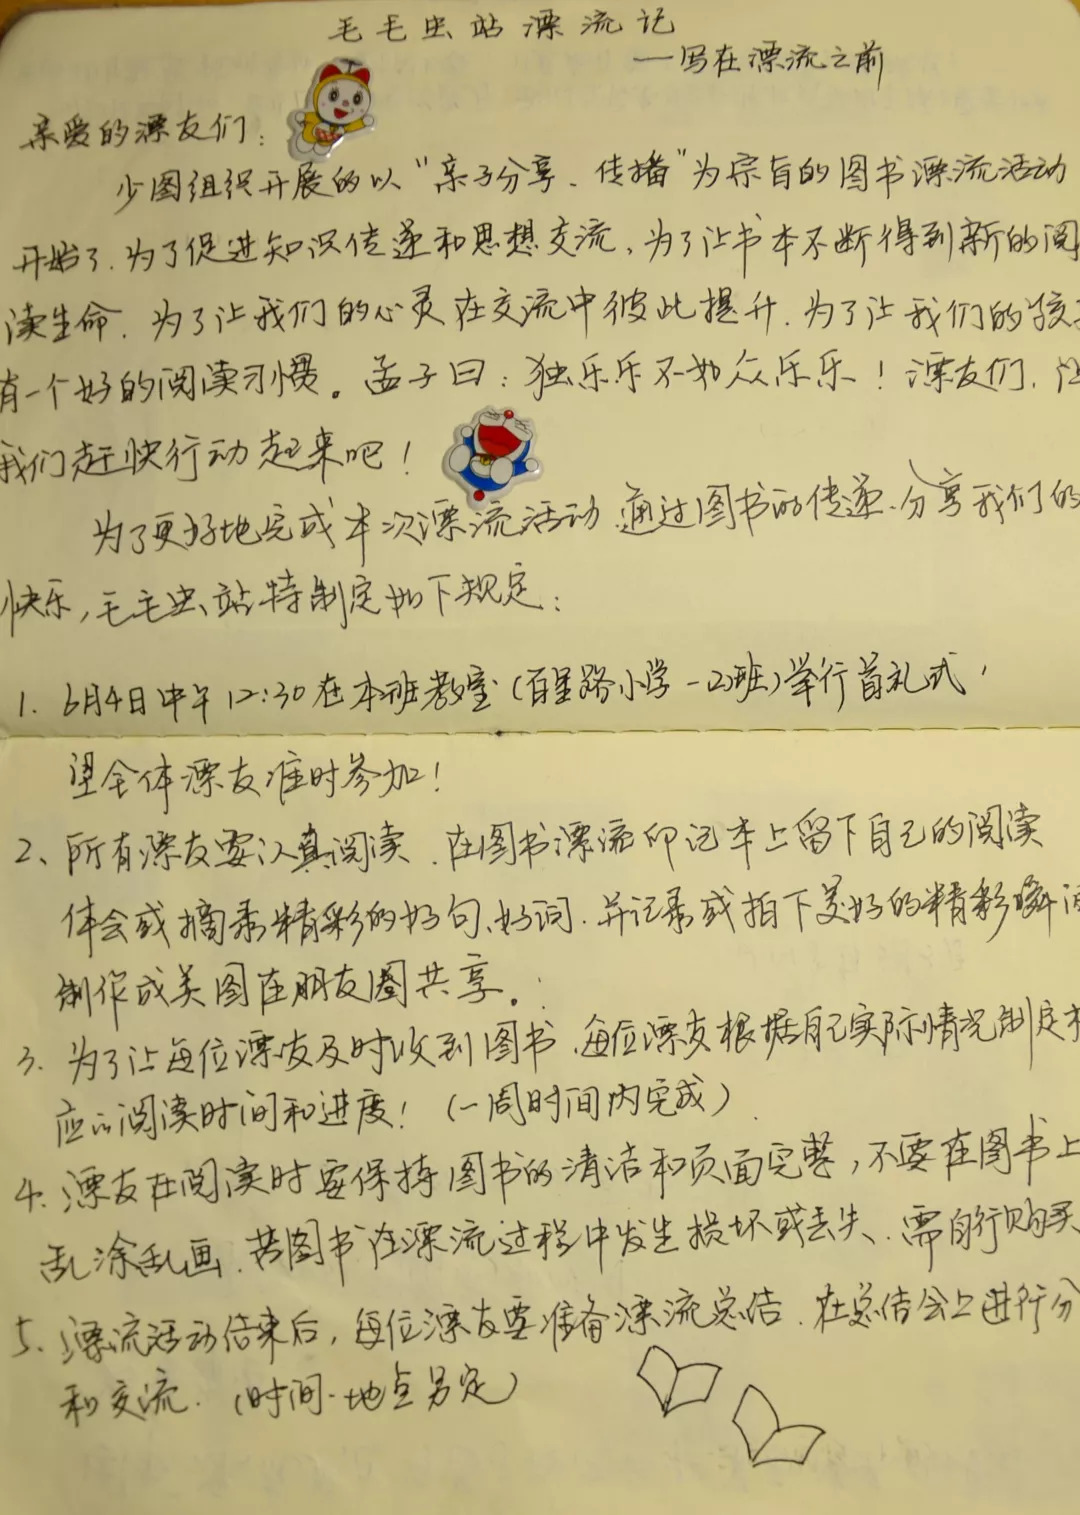 毛毛虫站漂流记
—写在漂流之前
亲爱的漂友们：
少图组织开展的以“亲子分享、传播”为宗旨的图书漂流活动
开始了.为了促进知识传递和思想交流、为了让书本不断得到新的阅
读生命.为了让我们的心灵在交流中彼此提升.为了让我们的孩
有一个好的阅读习惯。孟子曰：独乐乐不如众乐乐！漂友们.让
我们赶快行动起来吧！
为了更好地完成本次漂流活动.通过图书的传递、分享我们的
快乐，毛毛虫站特制定如下规定：
1. 6月4日中午12:30在本班教室（百里路小学一(2)班）举行首礼式，
望全体漂友准时参加！
2、所有漂友要认真阅读.在图书漂流印记本上留下自己的阅读
体会或摘录精彩的好句、好词.并记录或拍下美好的精彩瞬
制作成美图在朋友圈共享。
3. 为了让每位漂友及时收到图书.每位漂友根据自己实际情况制定
应的阅读时间和进度！（一周时间内完成）
4. 漂友在阅读时要保持图书的清洁和页面完整，不要在图书上
乱涂乱画.若图书在漂流过程中发生损坏或丢失、需自行购买
5、漂流活动结束后，每位漂友要准备漂流总结.在总结会上进行分
和交流.（时间.地点另定）